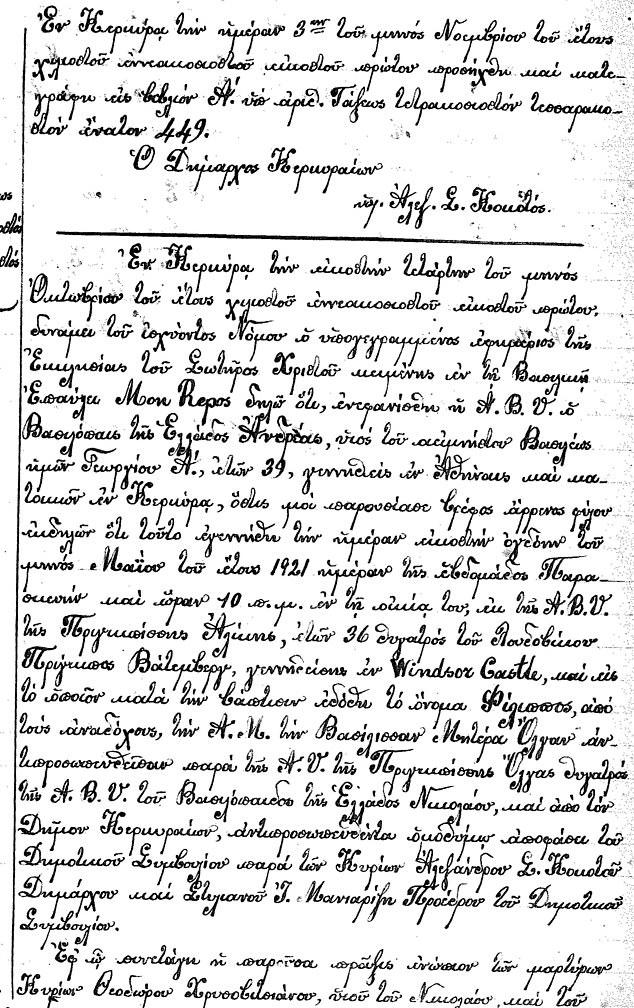 Ἐν Κερκύρᾳ τὴν ἡμέραν 3ην τοῦ μηνὸς Νοεμβρίου τοῦ ἔτους
χιλιοστοῦ ἐννεακοσιοστοῦ εἰκοστοῦ πρώτου προσήχθη καὶ κατε-
γράφη εἰς βιβλίον Α΄. ὑπ' ἀριθ. Τάξεως τετρακοσιοστὸν τεσσαρακο-
στὸν ἔνατον 449.
Ὁ Δήμαρχος Κερκυραίων
ὑπ. Ἀλεξ. Σ. Κοκοτός.
Ἐν Κερκύρᾳ τὴν εἰκοστὴν τετάρτην τοῦ μηνὸς
Ὀκτωβρίου τοῦ ἔτους χιλιοστοῦ ἐννεακοσιοστοῦ εἰκοστοῦ πρώτου,
δυνάμει τοῦ ἰσχύοντος Νόμου ὁ ὑπογεγραμμένος ἐφημέριος τῆς
Ἐκκλησίας τοῦ Σωτῆρος Χριστοῦ κειμένης ἐν τῇ Βασιλικῇ
Ἐπαύλει Mon Repos δηλῶ ὅτι, ἐνεφανίσθη ἡ Α. Β. Υ. ὁ
Βασιλόπαις τῆς Ἑλλάδος Ἀνδρέας, υἱὸς τοῦ ἀειμνήστου Βασιλέως
ἡμῶν Γεωργίου Α΄., ἐτῶν 39, γεννηθεὶς ἐν Ἀθήναις καὶ κα-
τοικῶν ἐν Κερκύρᾳ, ὅστις μοὶ παρουσίασε βρέφος ἄρρενος φύλου
ἐκδηλῶν ὅτι τοῦτο ἐγεννήθη τὴν ἡμέραν εἰκοστὴν ὀγδόην τοῦ
μηνὸς Μαΐου τοῦ ἔτους 1921 ἡμέραν τῆς ἑβδομάδος Παρα-
σκευὴν καὶ ὥραν 10 π.μ. ἐν τῇ οἰκίᾳ του, ἐκ τῆς Α. Β. Υ.
τῆς Πριγκιπίσσης Ἀλίκης, ἐτῶν 36 θυγατρὸς τοῦ Λουδοβίκου
Πρίγκιπος Βάτεμβεργ, γεννηθείσης ἐν Windsor Castle, καὶ εἰς
τὸ ὁποῖον κατὰ τὴν βάπτισιν ἐδόθη τὸ ὄνομα Φίλιππος, ἀπὸ
τοὺς ἀναδόχους, τὴν Α. Μ. τὴν Βασίλισσαν Μητέρα Ὄλγαν ἀν-
τιπροσωπευθεῖσαν παρὰ τῆς Α. Υ. τῆς Πριγκιπίσσης Ὄλγας θυγατρὸς
τῆς Α. Β. Υ. τοῦ Βασιλόπαιδος τῆς Ἑλλάδος Νικολάου, καὶ ἀπὸ τὸν
Δῆμον Κερκυραίων, ἀντιπροσωπευθέντα ὁμοθύμῳ ἀποφάσει τοῦ
Δημοτικοῦ Συμβουλίου παρὰ τῶν Κυρίων Ἀλεξάνδρου Σ. Κοκοτοῦ
Δημάρχου καὶ Στυλιανοῦ Ἰ. Μανιαρίζη Προέδρου τοῦ Δημοτικοῦ
Συμβουλίου.
Ἐφ' ᾧ συνετάγη ἡ παροῦσα πρᾶξις ἐνώπιον τῶν μαρτύρων
Κυρίων Θεοδώρου Χρυσοβιτσιάνου, υἱοῦ τοῦ Νικολάου, καὶ τοῦ